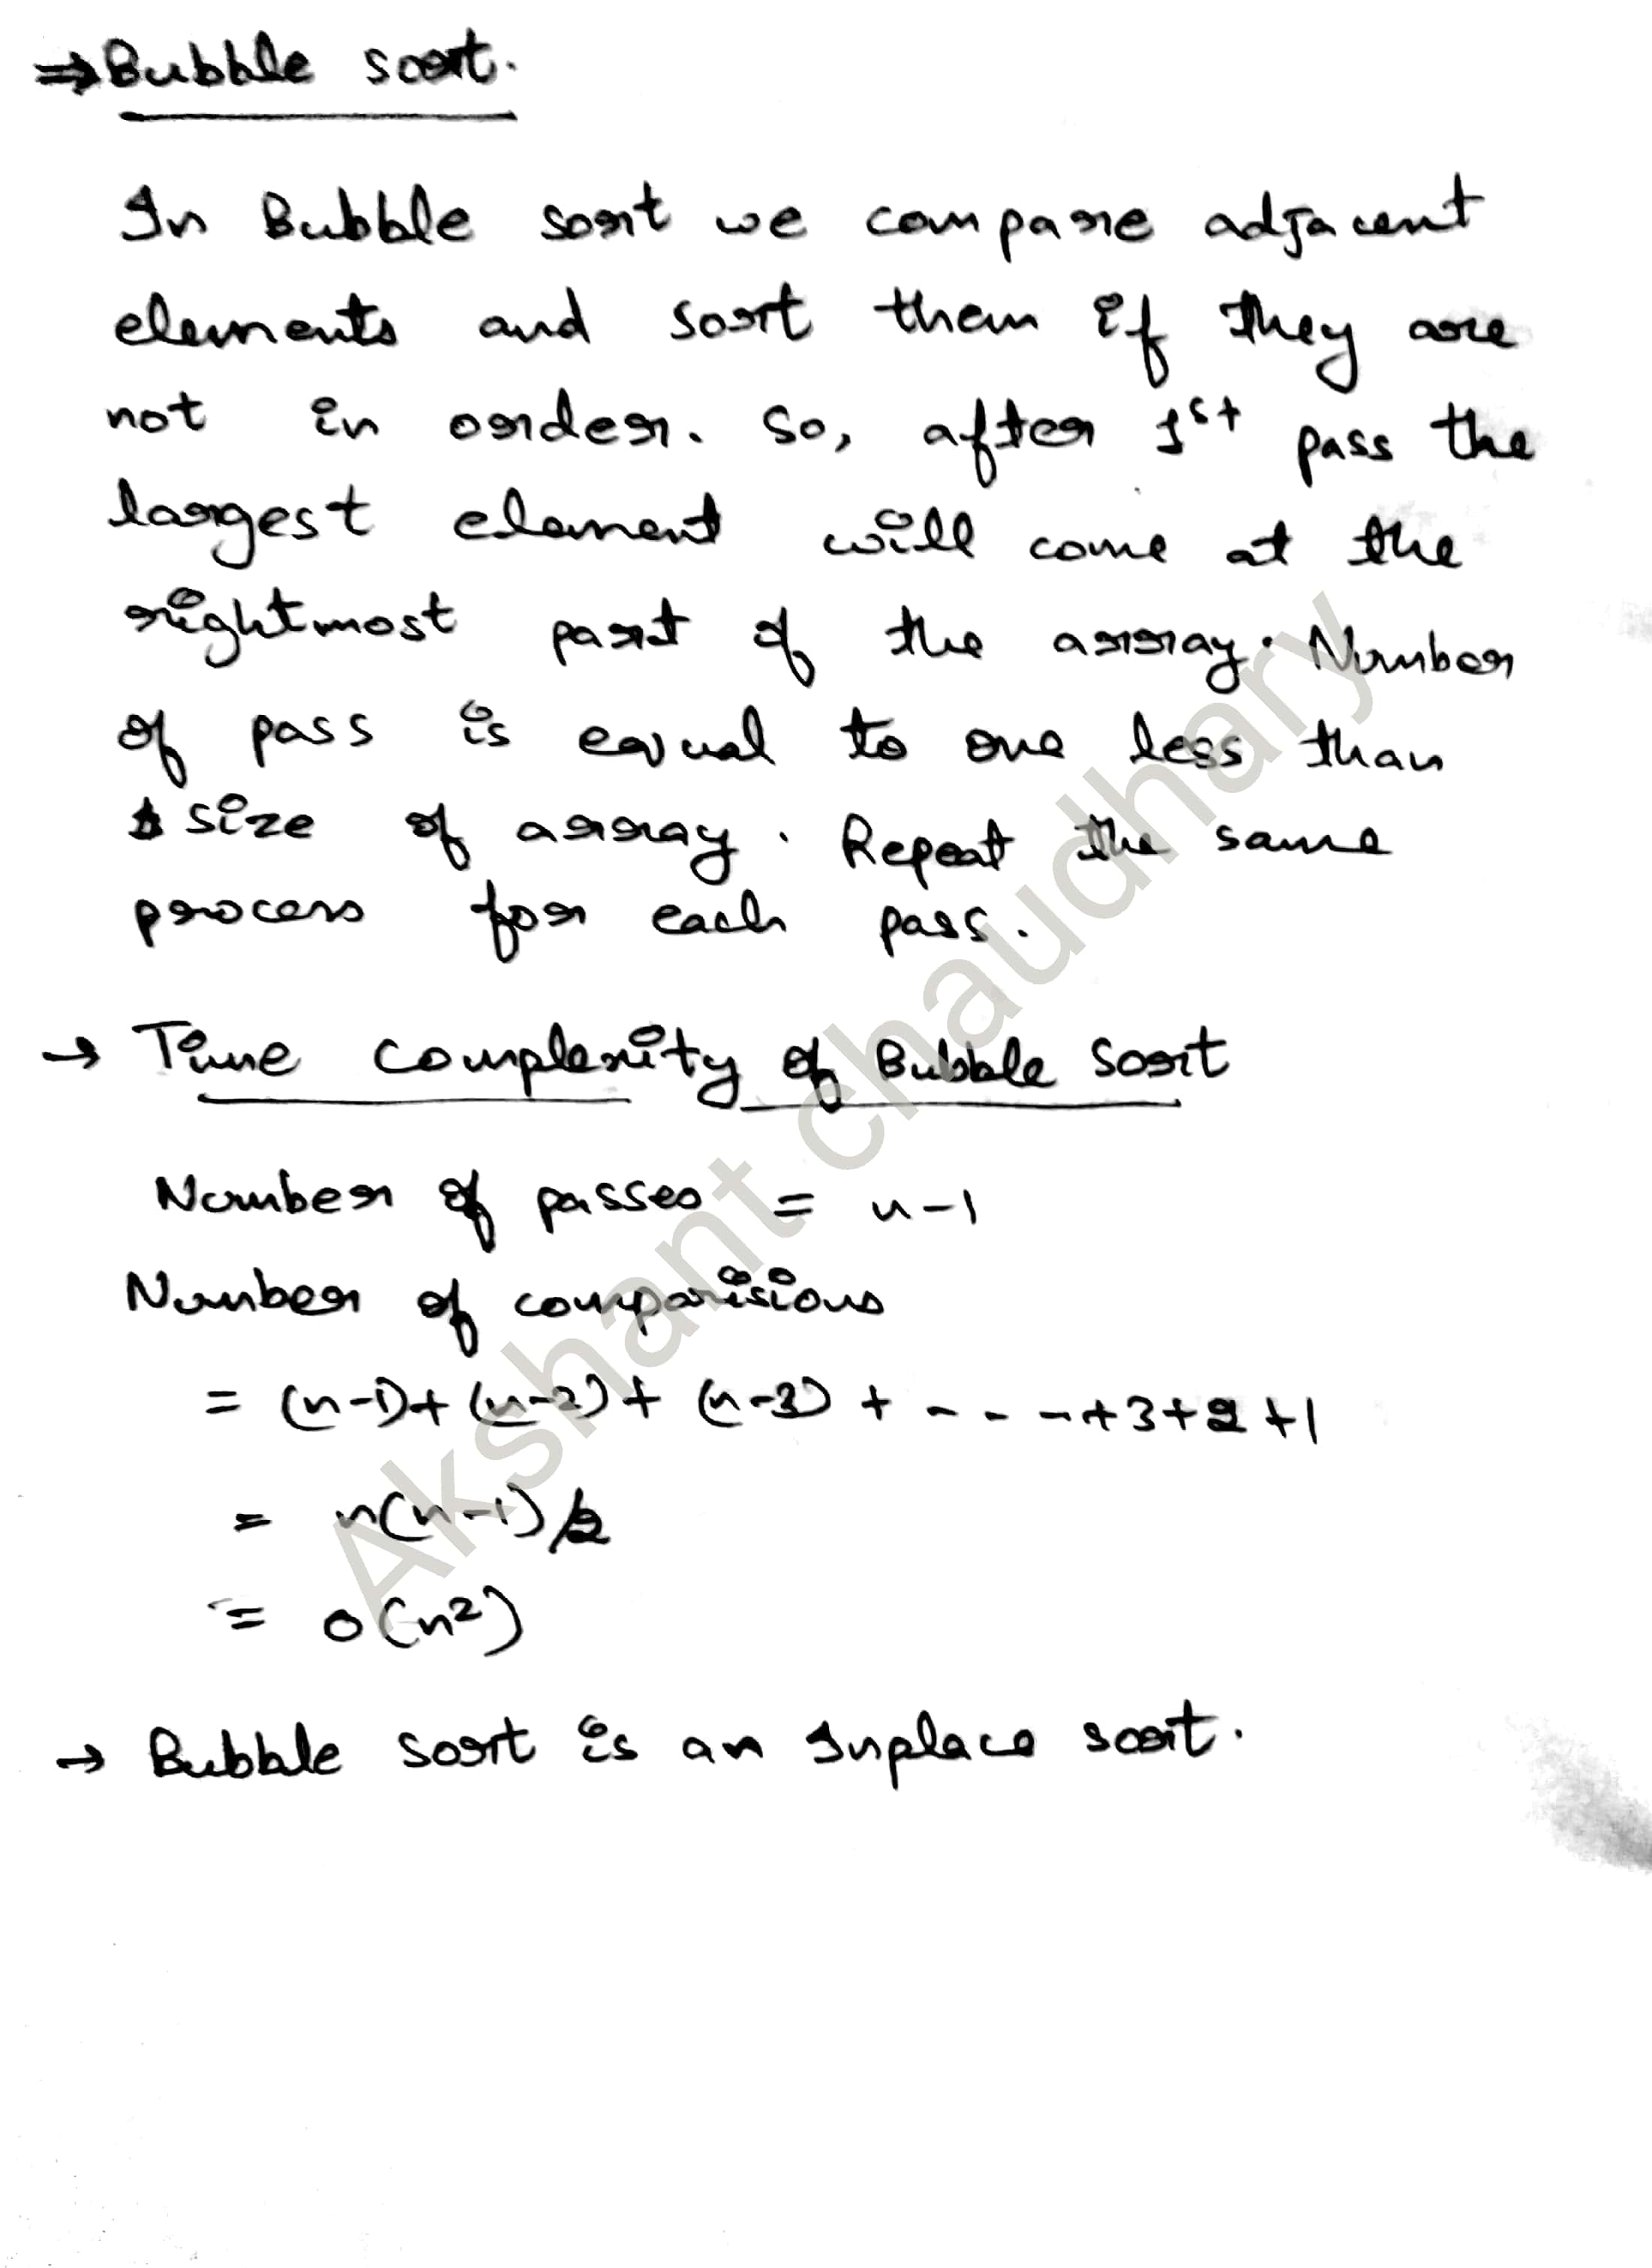 ⇒ Bubble sort.
In Bubble sort we compare adjacent
elements and sort them if they are
not in order. So, after 1st pass the
largest element will come at the
rightmost part of the array. Number
of pass is equal to one less than
size of array. Repeat the same
process for each pass.
→ Time complexity of Bubble sort
Number of passes = n-1
Number of comparisions
= (n-1)+(n-2)+(n-3)+----+3+2+1
= n(n-1)/2
= O(n²)
→ Bubble sort is an Inplace sort.
Akshant chaudhary